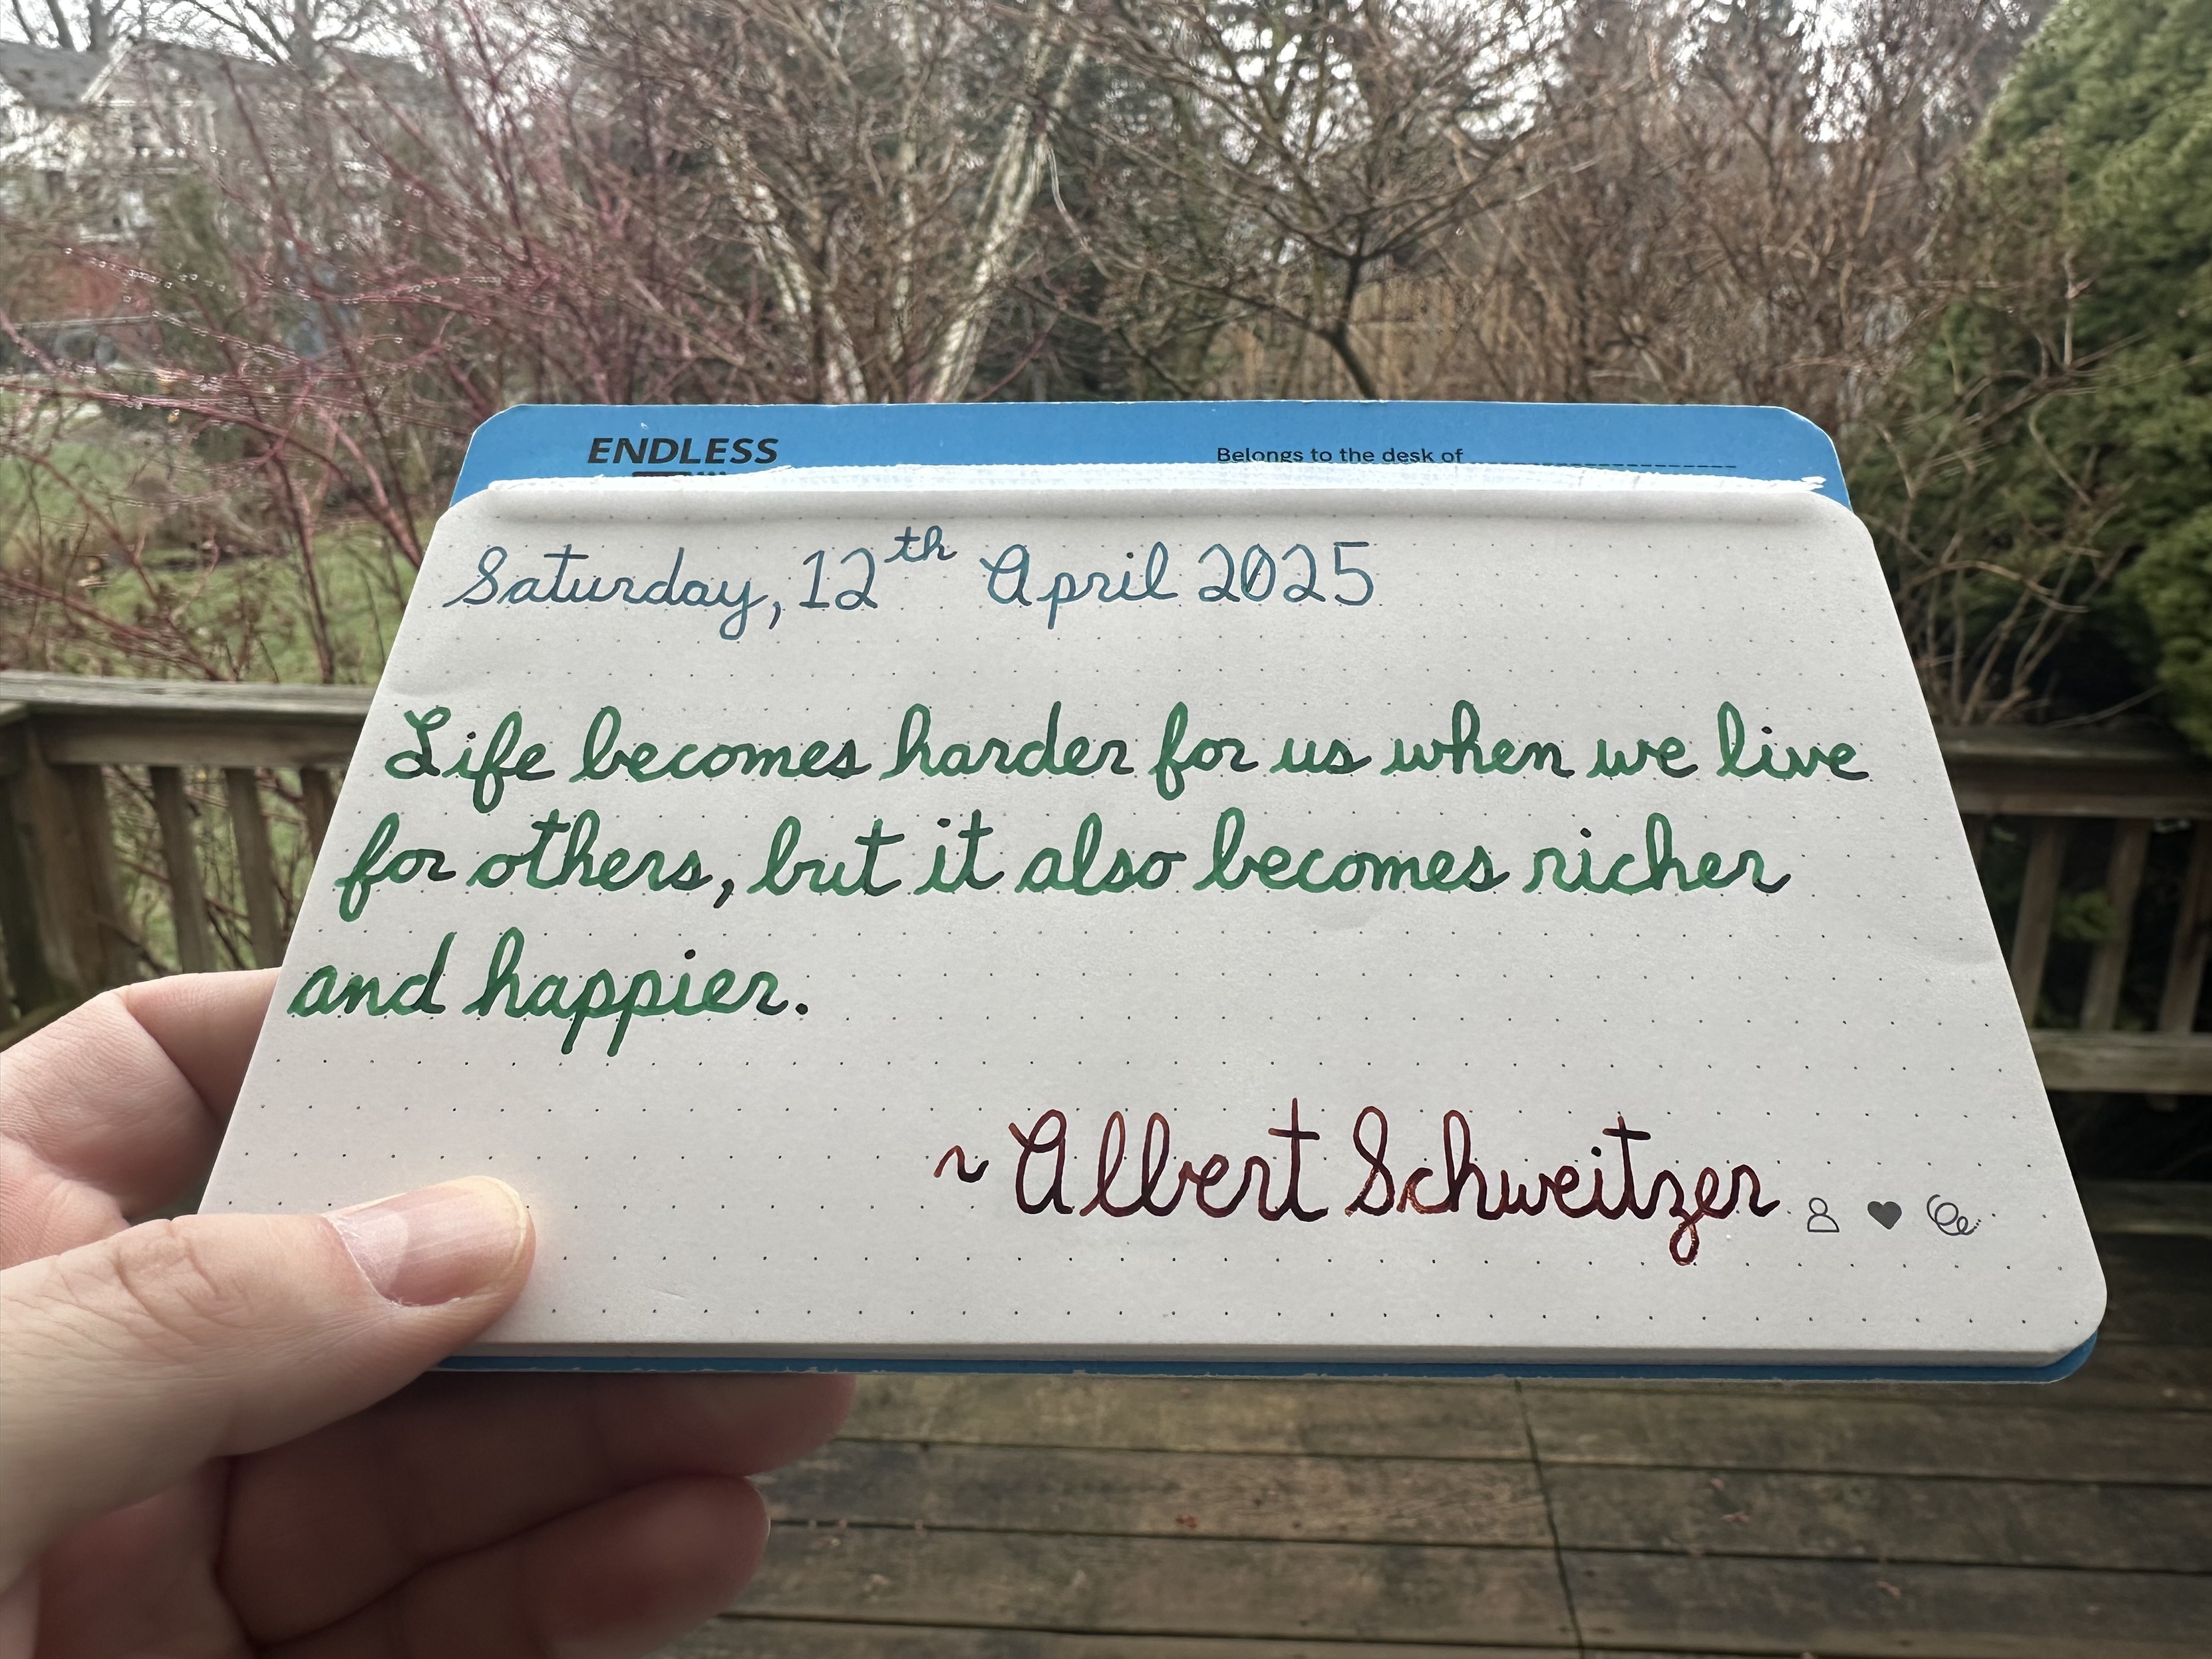 ENDLESS
Belongs to the desk of
Saturday, 12th April 2025
Life becomes harder for us when we live
for others, but it also becomes richer
and happier.
~ Albert Schweitzer